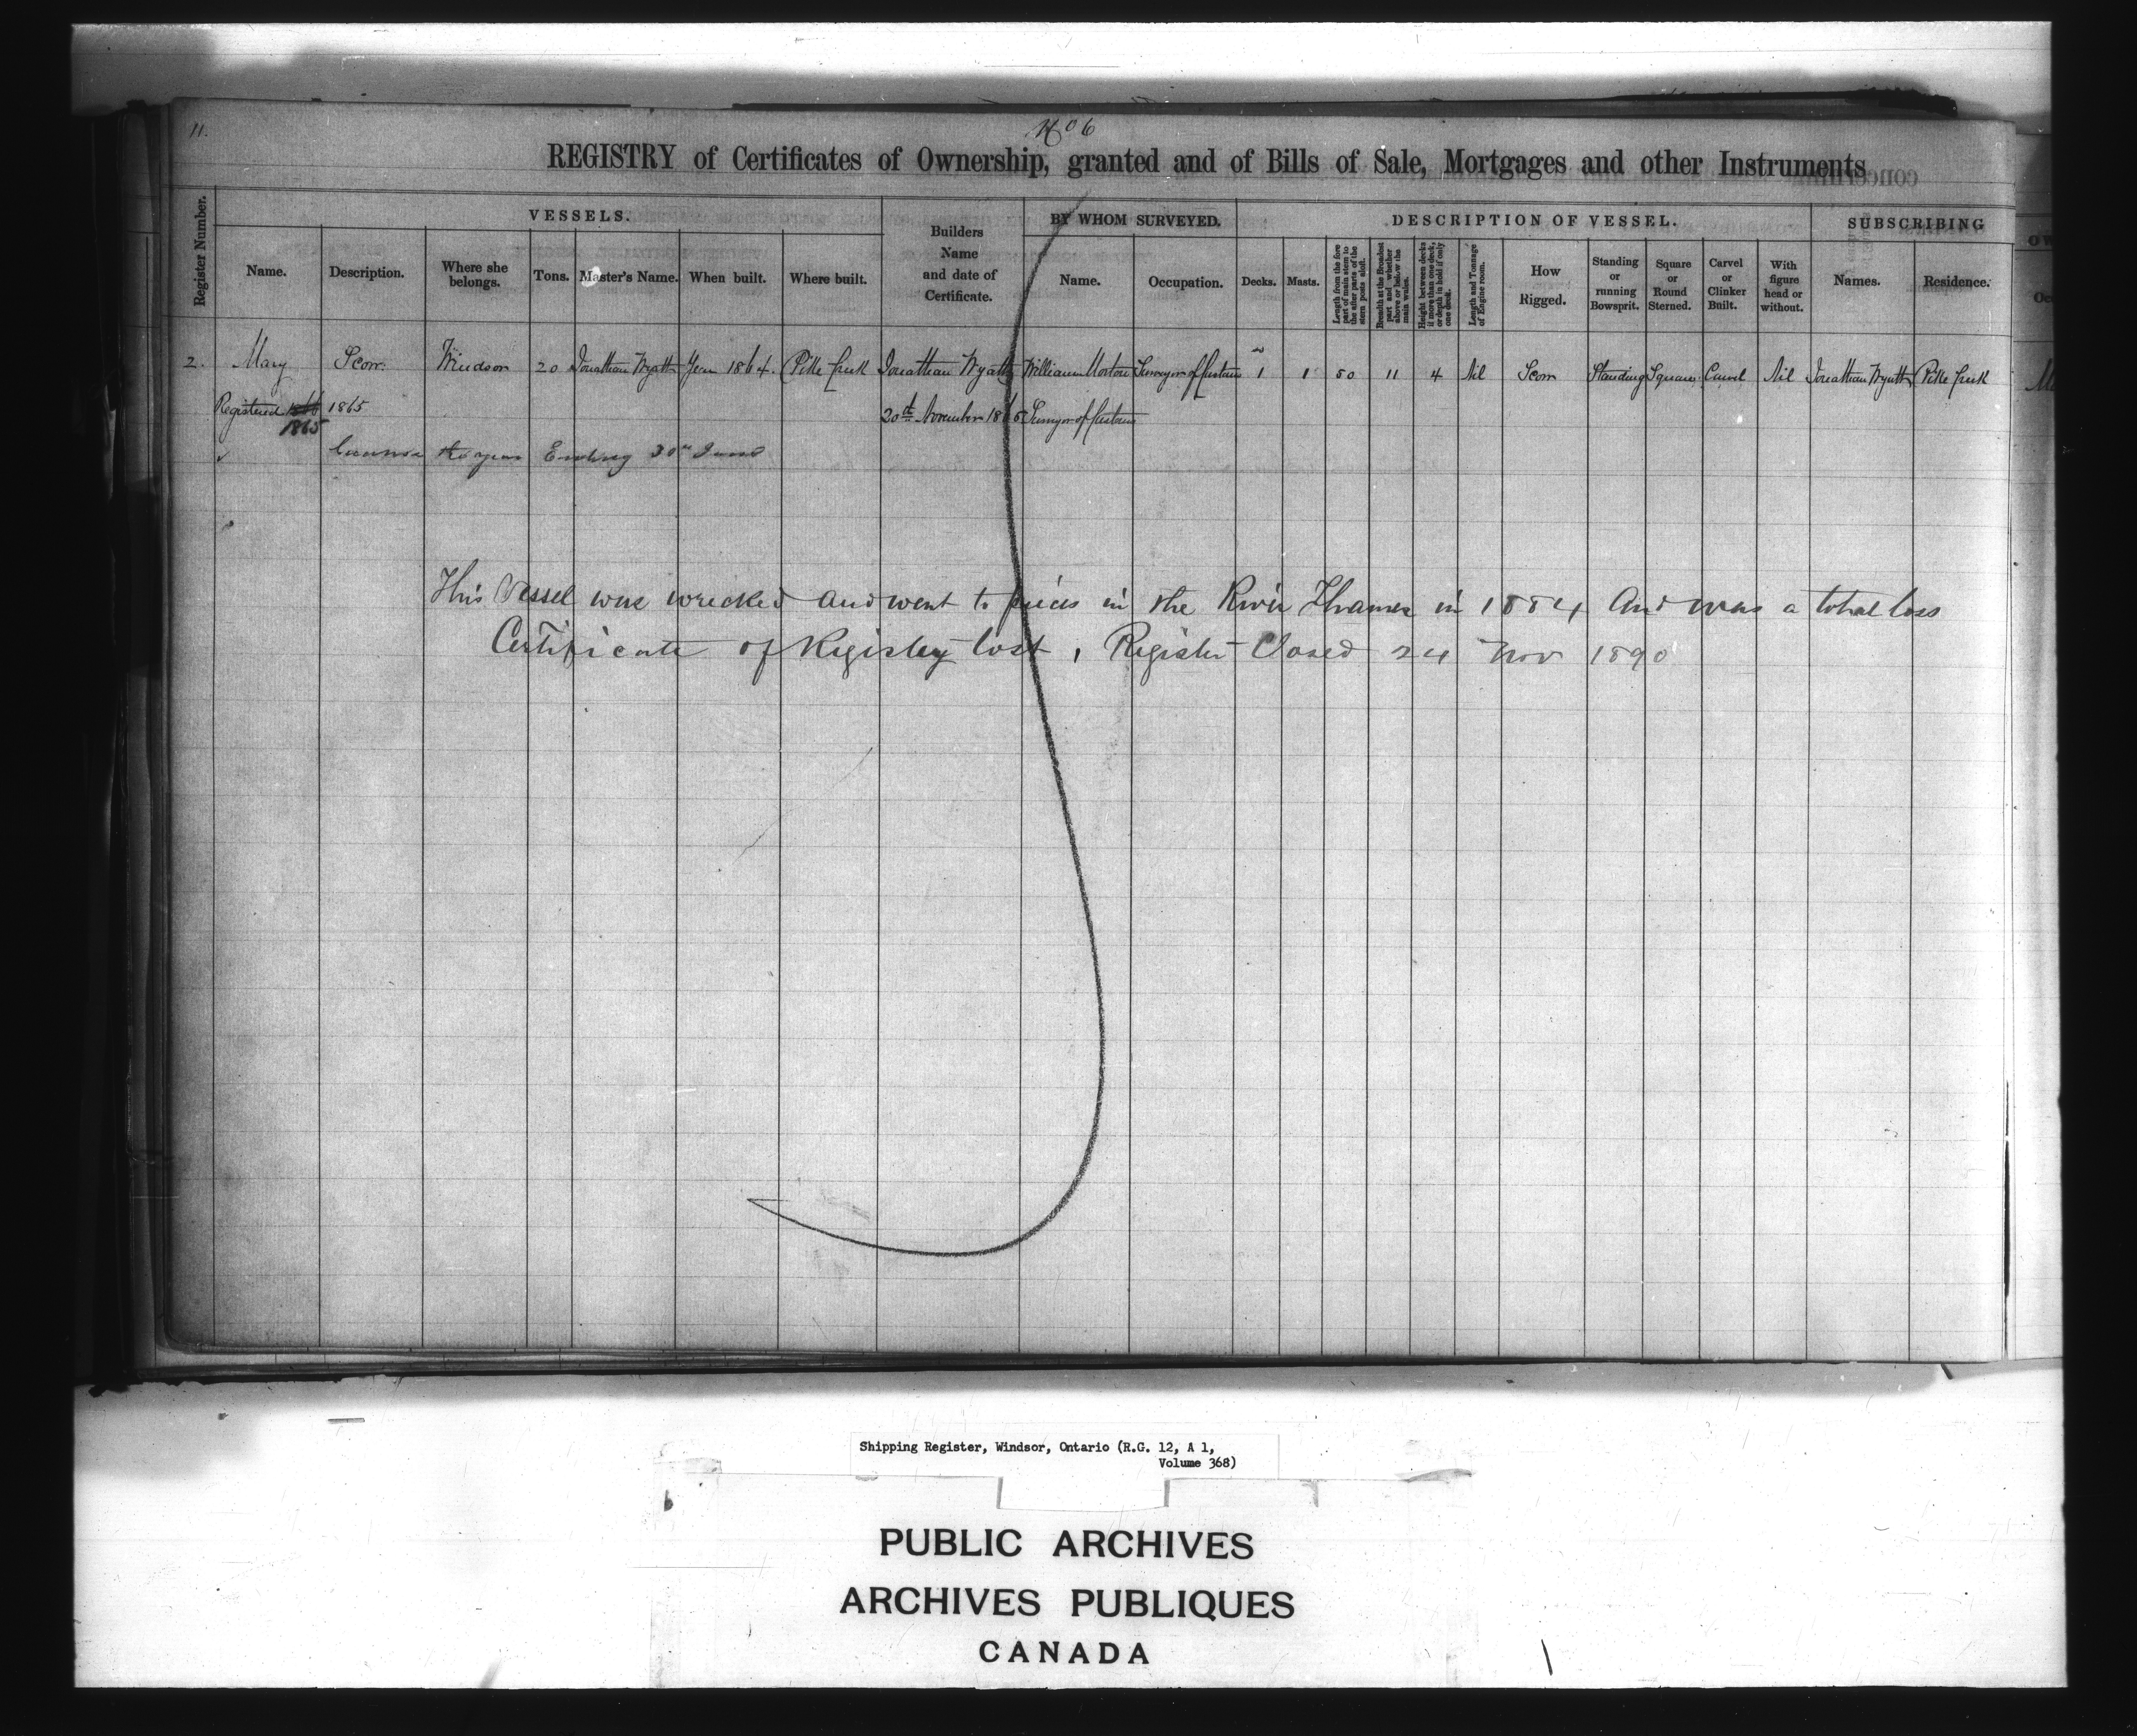 11.
No 6
REGISTRY of Certificates of Ownership, granted and of Bills of Sale, Mortgages and other Instruments
Register Number.
VESSELS.
Name.
Description.
Where she belongs.
Tons.
Master's Name.
When built.
Where built.
Builders Name and date of Certificate.
BY WHOM SURVEYED.
Name.
Occupation.
DESCRIPTION OF VESSEL.
Decks.
Masts.
Length from the fore part of main stem to the after parts of the stern posts aloft.
Breadth at the Broadest part and whether above or below the main wales.
Height between decks if more than one deck, or depth in hold if only one deck.
Length and Tonnage of Engine room.
How Rigged.
Standing or running Bowsprit.
Square or Round Sterned.
Carvel or Clinker Built.
With figure head or without.
SUBSCRIBING
Names.
Residence.
2. Mary Scow Windsor 20 Jonathan Wyatt Year 1864 Pike Creek Jonathan Wyatt William Morton Surveyor of Customs 1 1 50 11 4 Nil Scow Standing Square Carvel Nil Jonathan Wyatt Pike Creek
Registered 1866 1865 20th November 1865 Surveyor of Customs
1865
the year Ending 30th June
This Vessel was wrecked and went to pieces in the River Thames in 1884 And was a total loss
Certificate of Registry lost, Register Closed 24 Nov 1890
Shipping Register, Windsor, Ontario (R.G. 12, A 1,
Volume 368)
PUBLIC ARCHIVES
ARCHIVES PUBLIQUES
CANADA